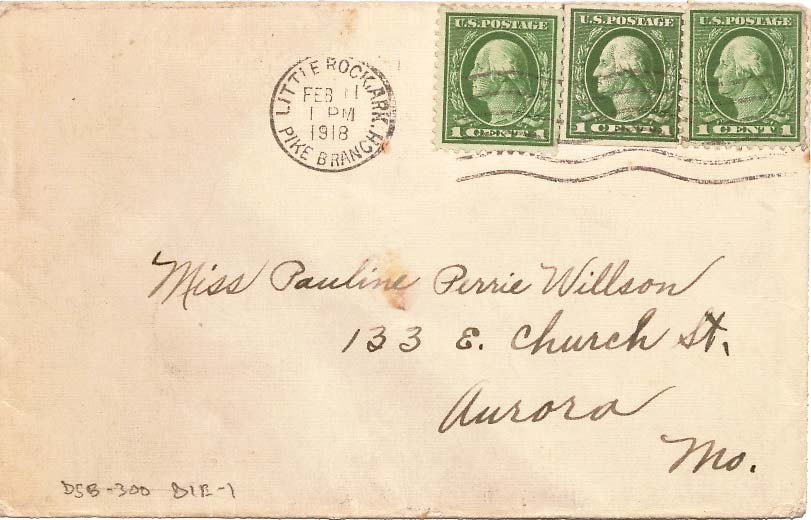 U.S. POSTAGE U.S. POSTAGE U.S. POSTAGE
1 CENT 1 1 CENT 1 1 CENT 1
LITTLE ROCK, ARK.
FEB 11
1 PM
1918
PIKE BRANCH.
Miss Pauline Perrie Willson
133 E. Church St.
Aurora
Mo.